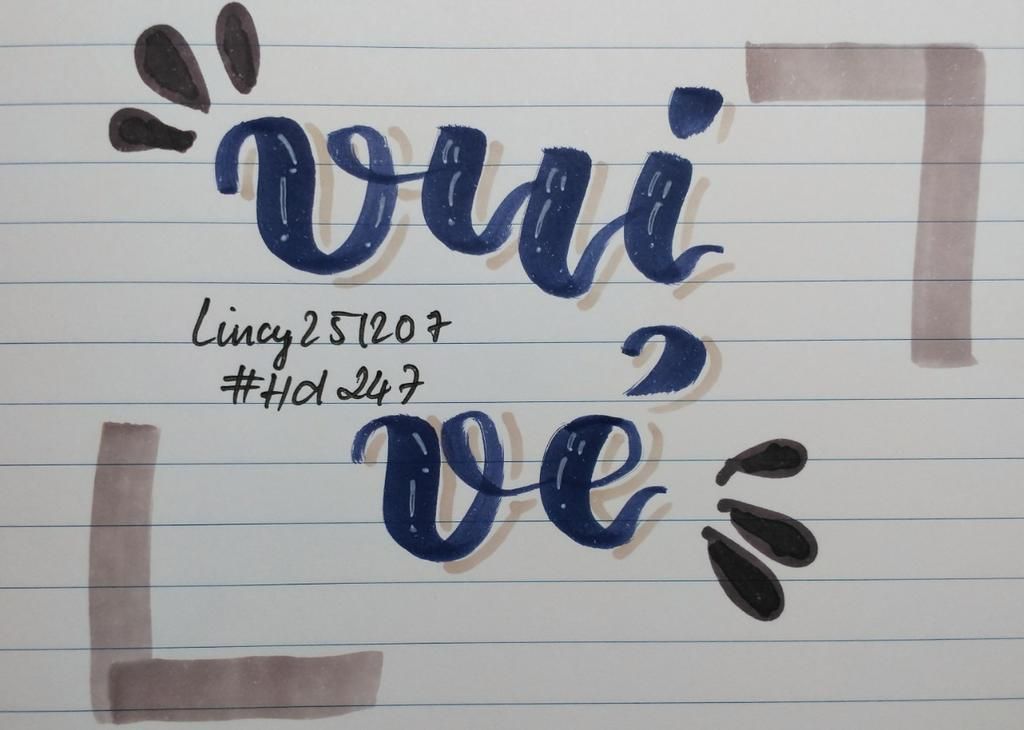 vui
Lincy251207
#Hd247
vẻ